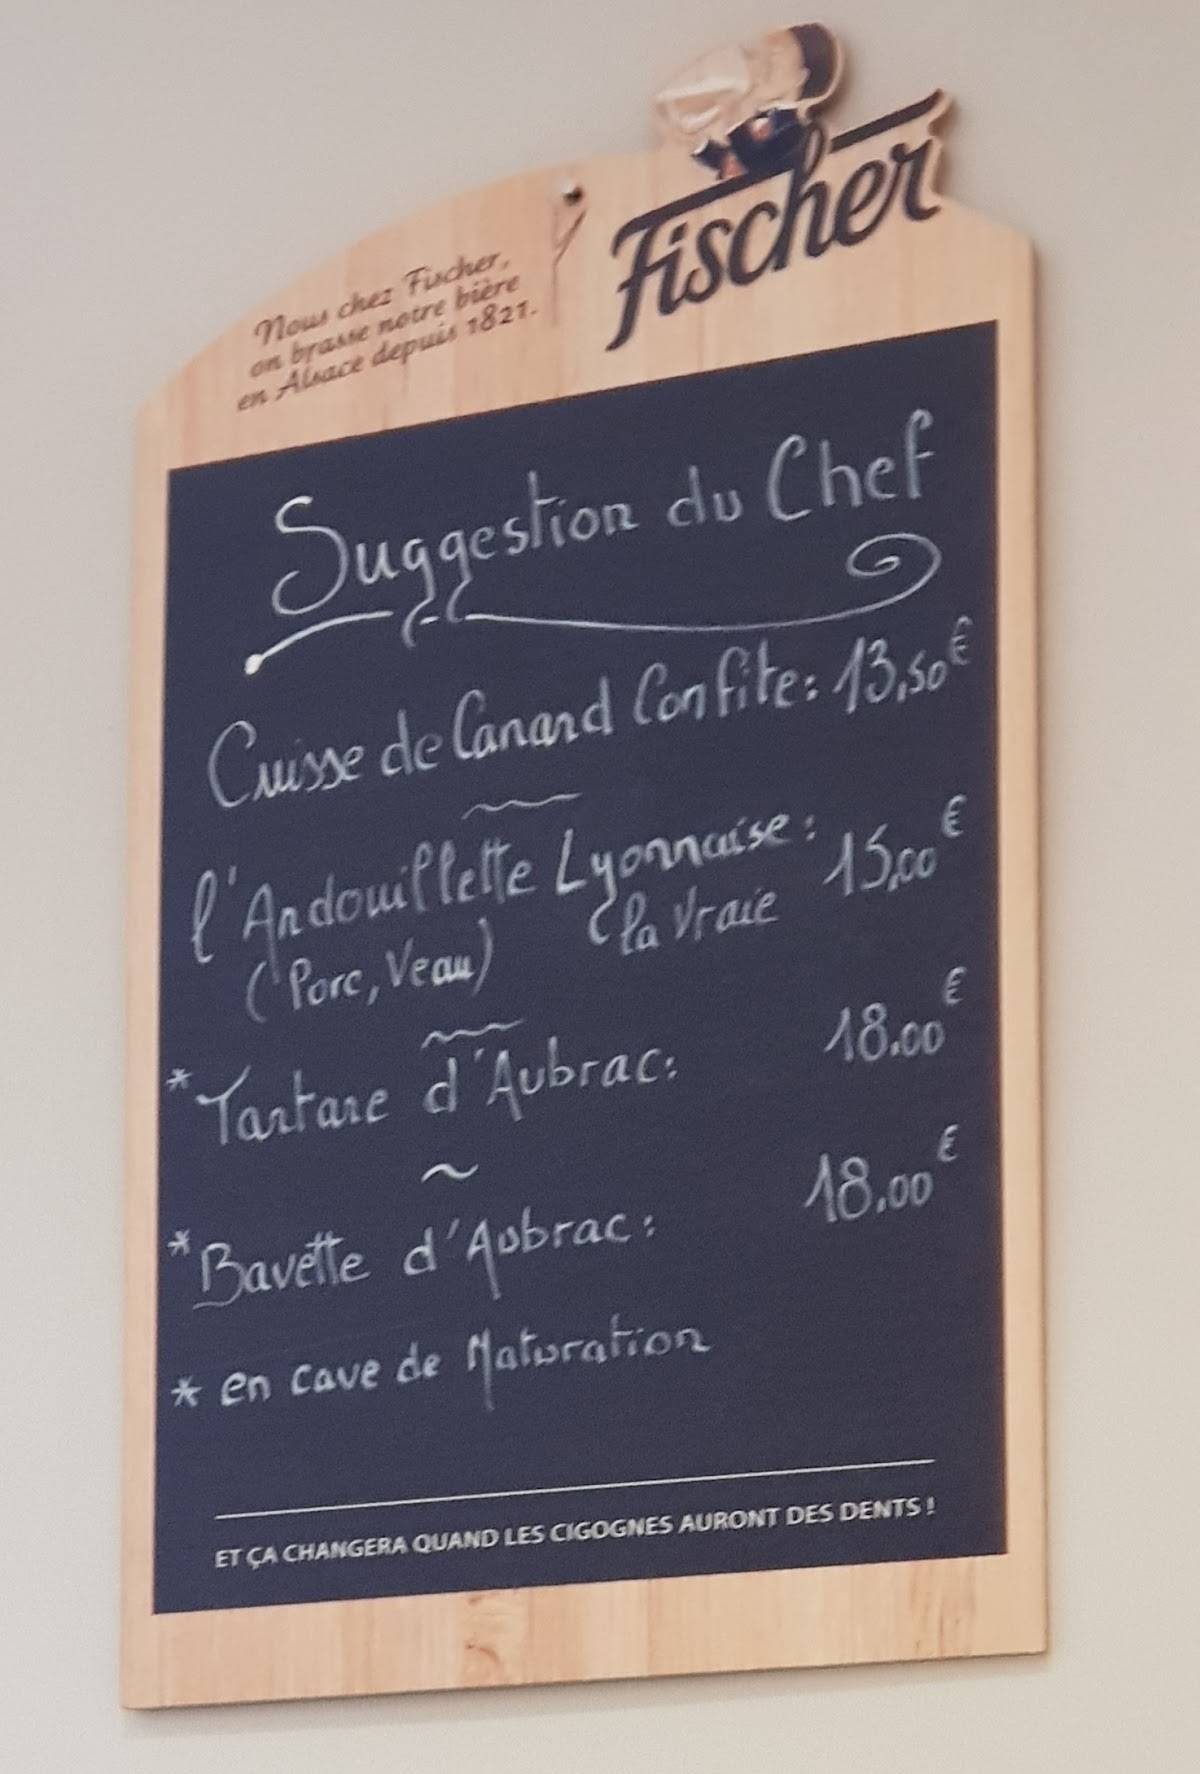 Fischer
Nous chez Fischer,
on brasse notre bière
en Alsace depuis 1821.
Suggestion du Chef
Cuisse de Canard Confite: 13,50€
l'Andouillette Lyonnaise: 15,00€
(Porc, Veau) la Vraie
*Tartare d'Aubrac: 18.00€
*Bavette d'Aubrac: 18.00€
* en cave de Maturation
ET ÇA CHANGERA QUAND LES CIGOGNES AURONT DES DENTS !